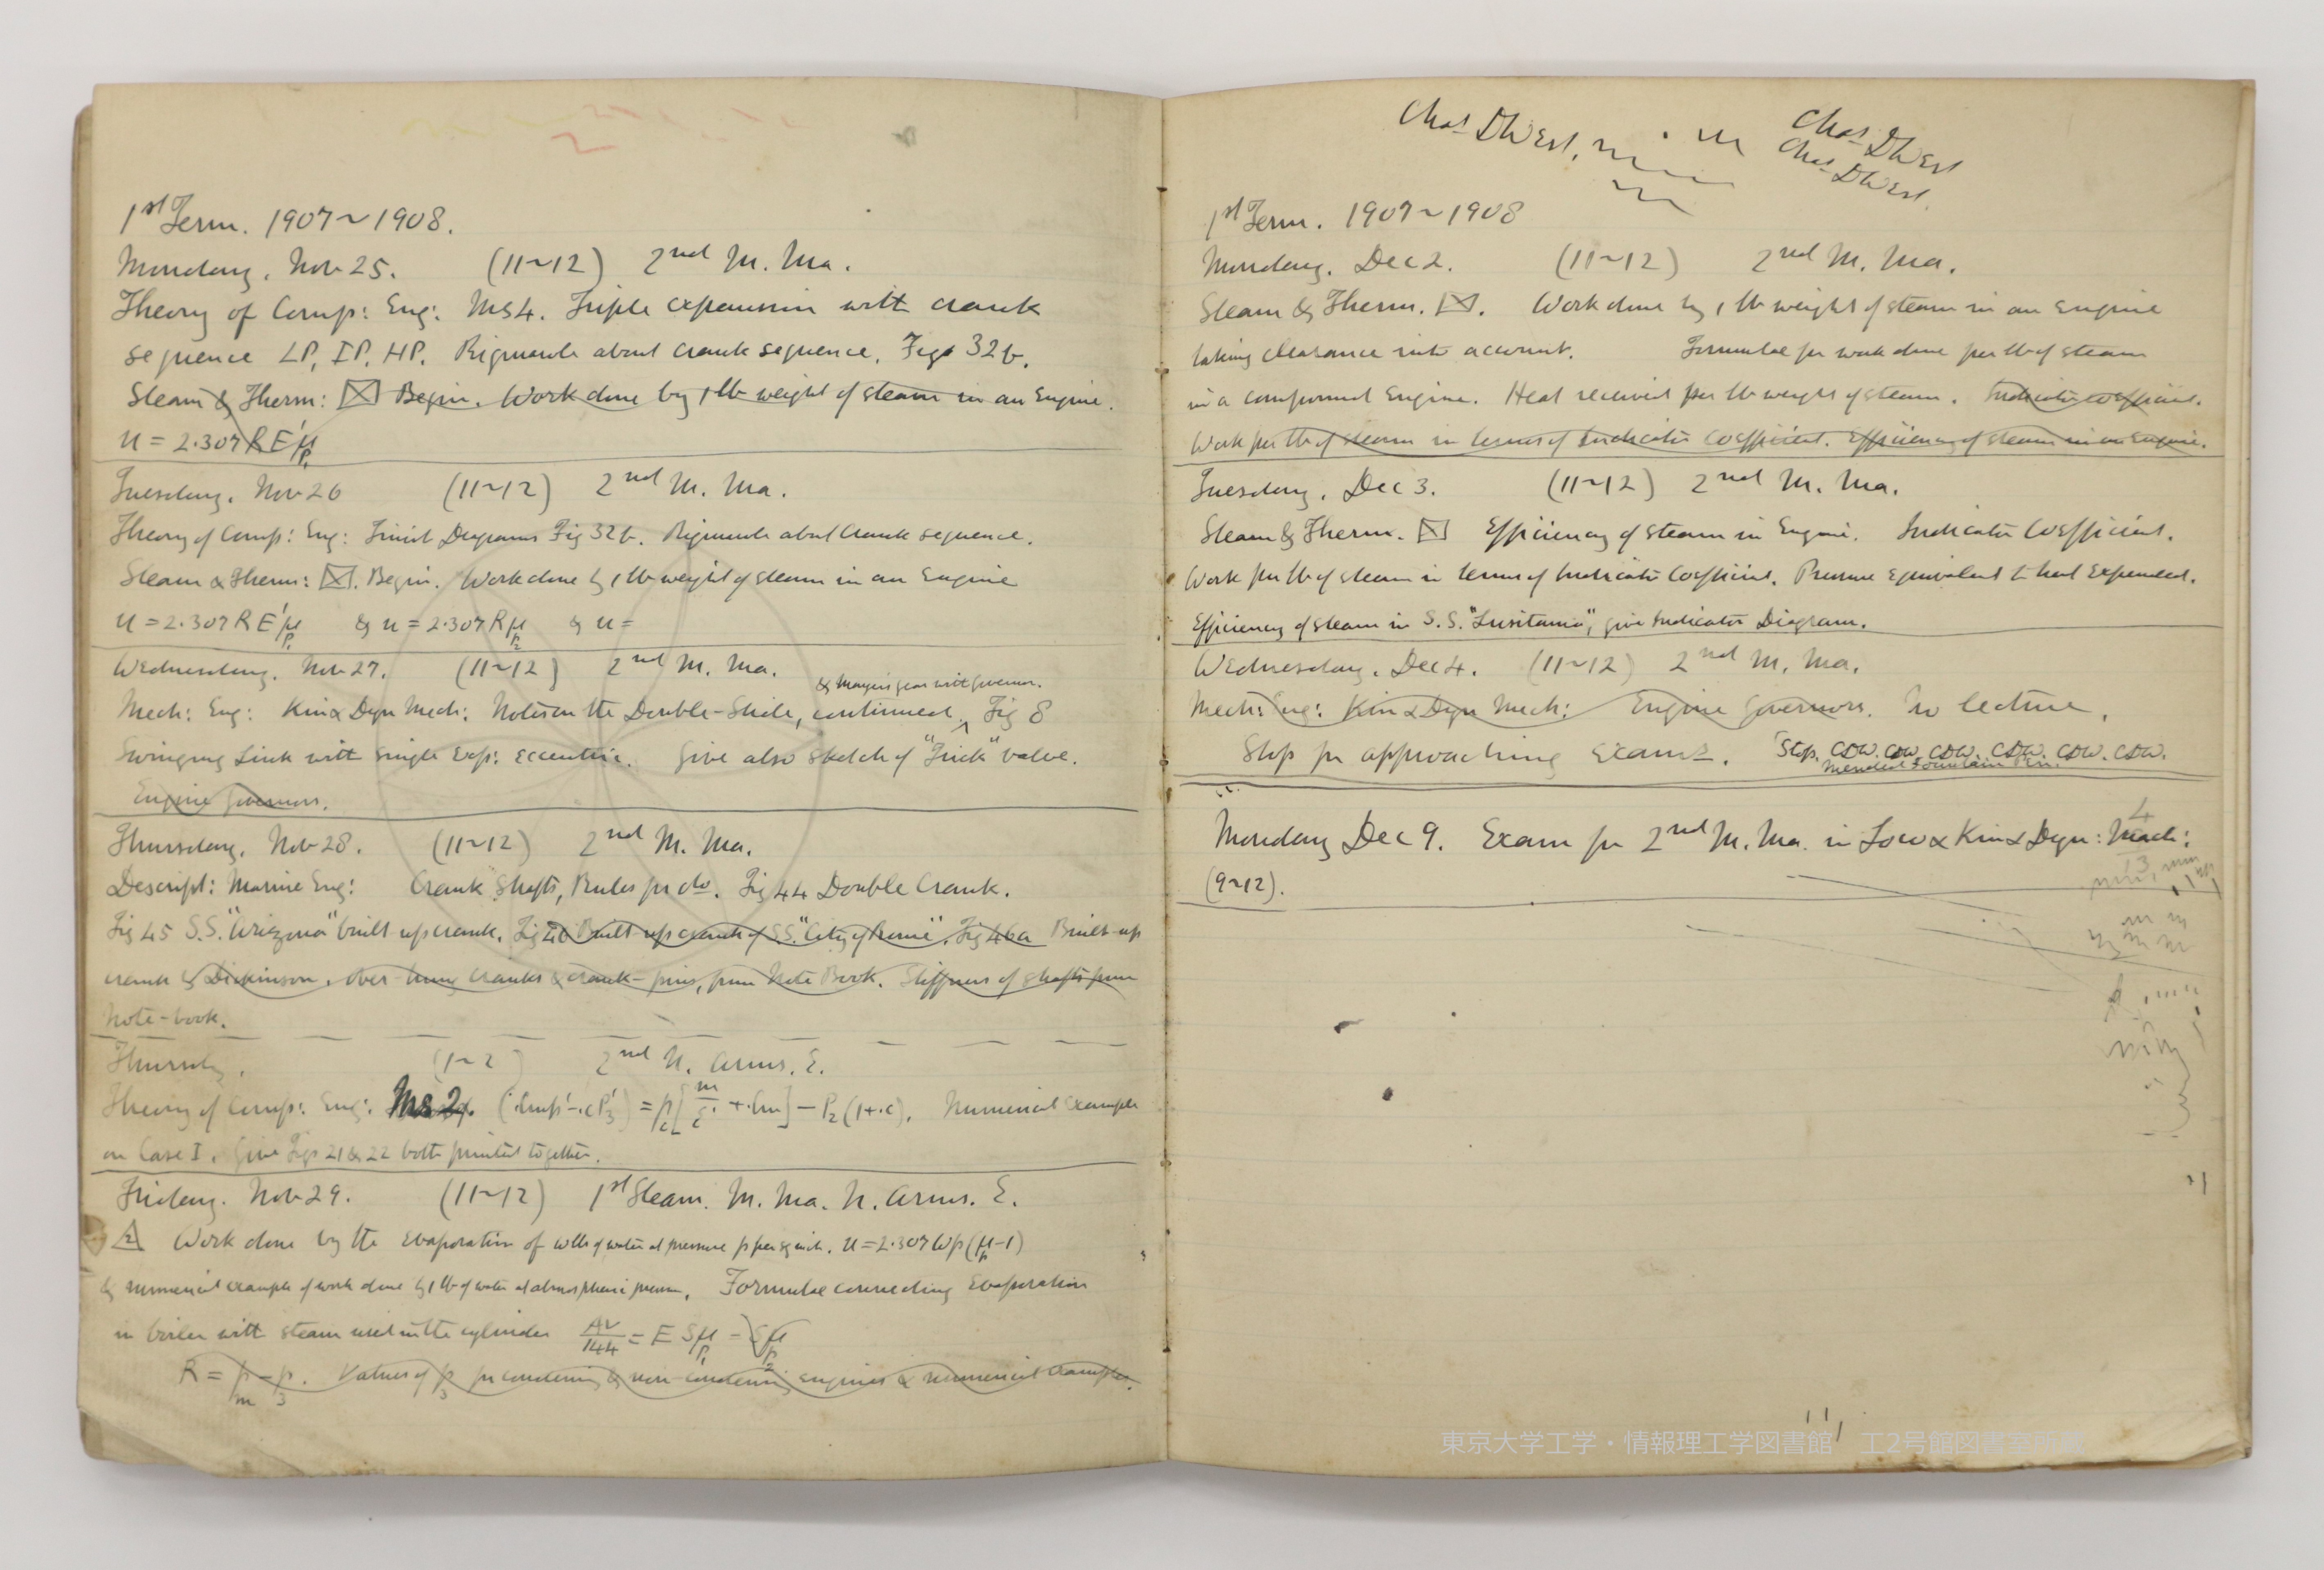 1st Term. 1907~1908.
Monday, Nov 25. (11~12) 2nd M. Ma.
Theory of Comp: Eng: MS4. Triple expansion with crank
sequence LP, IP, HP. Rigmarole about crank sequence. Figs 32b.
Steam & Therm: Begin. Work done by 1 lb weight of steam in an Engine.
u = 2.307 R E'μ p1
Tuesday. Nov 26 (11~12) 2nd M. Ma.
Theory of Comp: Eng: Finish Diagrams Fig 32b. Rigmarole about crank sequence.
Steam & Therm: Begin. Work done by 1 lb weight of steam in an Engine
u = 2.307 R E'μ p1 & u = 2.307 R μ p2 & u =
Wednesday. Nov 27. (11~12) 2nd M. Ma.
& Meyer's gear with governor.
Mech: Eng: Kin & Dyn Mech: Notes on the Double-Slide, continued, Fig 8
Swinging Link with single Exp: eccentric. Give also sketch of "Trick" valve.
Engine Governors.
Thursday. Nov 28. (11~12) 2nd M. Ma.
Descript: Marine Eng: Crank Shafts, Rules for do. Fig 44 Double Crank.
Fig 45 S.S. "Arizona" built-up crank. Fig 46 Built-up crank of S.S. "City of Rome". Fig 46a Built-up
crank by Dickinson. Over-hung cranks & crank-pins, from Note Book. Stiffness of shafts from
Note-book.
Thursday. (1~2) 2nd N. Arms. E.
Theory of Comp: Eng: MS 2. Numerical Example
on Case I. Give Figs 21 & 22 both printed together.
Friday. Nov 29. (11~12) 1st Steam. M. Ma. N. Arms. E.
2 Work done by the Evaporation of w lbs of water at pressure p per sq inch. u = 2.307 Wp(μp-1)
& numerical example of work done by 1 lb of water at atmospheric pressure. Formulae connecting Evaporation
in boiler with steam used in the cylinder AV/144 = E Sμ p1 - Sμ p2
R = pm - p3. Values of p3 for condensing & non-condensing engines & numerical examples.
Chas DWest, Chas DWest
Chas DWest
1st Term. 1907~1908
Monday. Dec 2. (11~12) 2nd M. Ma.
Steam & Therm. Work done by 1 lb weight of steam in an Engine
taking clearance into account. Formulae for work done per lb of steam
in a compound Engine. Heat received per lb weight of steam. Indicator Coefficient.
Work per lb of steam in terms of Indicator Coefficient. Efficiency of steam in an Engine.
Tuesday. Dec 3. (11~12) 2nd M. Ma.
Steam & Therm. Efficiency of steam in Engine. Indicator Coefficient.
Work per lb of steam in terms of Indicator Coefficient. Pressure Equivalent to heat Expended.
Efficiency of steam in S.S. "Lusitania", give Indicator Diagram.
Wednesday. Dec 4. (11~12) 2nd M. Ma.
Mech: Eng: Kin & Dyn Mech: Engine Governors. No lecture.
Stop for approaching Exams. Stop. CDW. CDW. CDW. CDW. CDW. CDW.
Mended Fountain Pen.
Monday Dec 9. Exam for 2nd M. Ma. in Loco & Kin & Dyn: Mach:
(9~12).
東京大学工学・情報理工学図書館 工2号館図書室所蔵